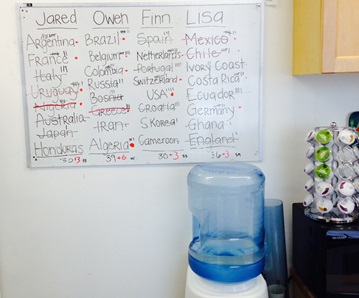 Jared Owen Finn Lisa
Argentina Brazil Spain Mexico
France Belgium Netherlands Chile
Italy Colombia Portugal Ivory Coast
Uruguay Russia Switzerland Costa Rica
Nigeria Bosnia USA Ecuador
Australia Greece Croatia Germany
Japan Iran S.Korea Ghana
Honduras Algeria Cameroon England